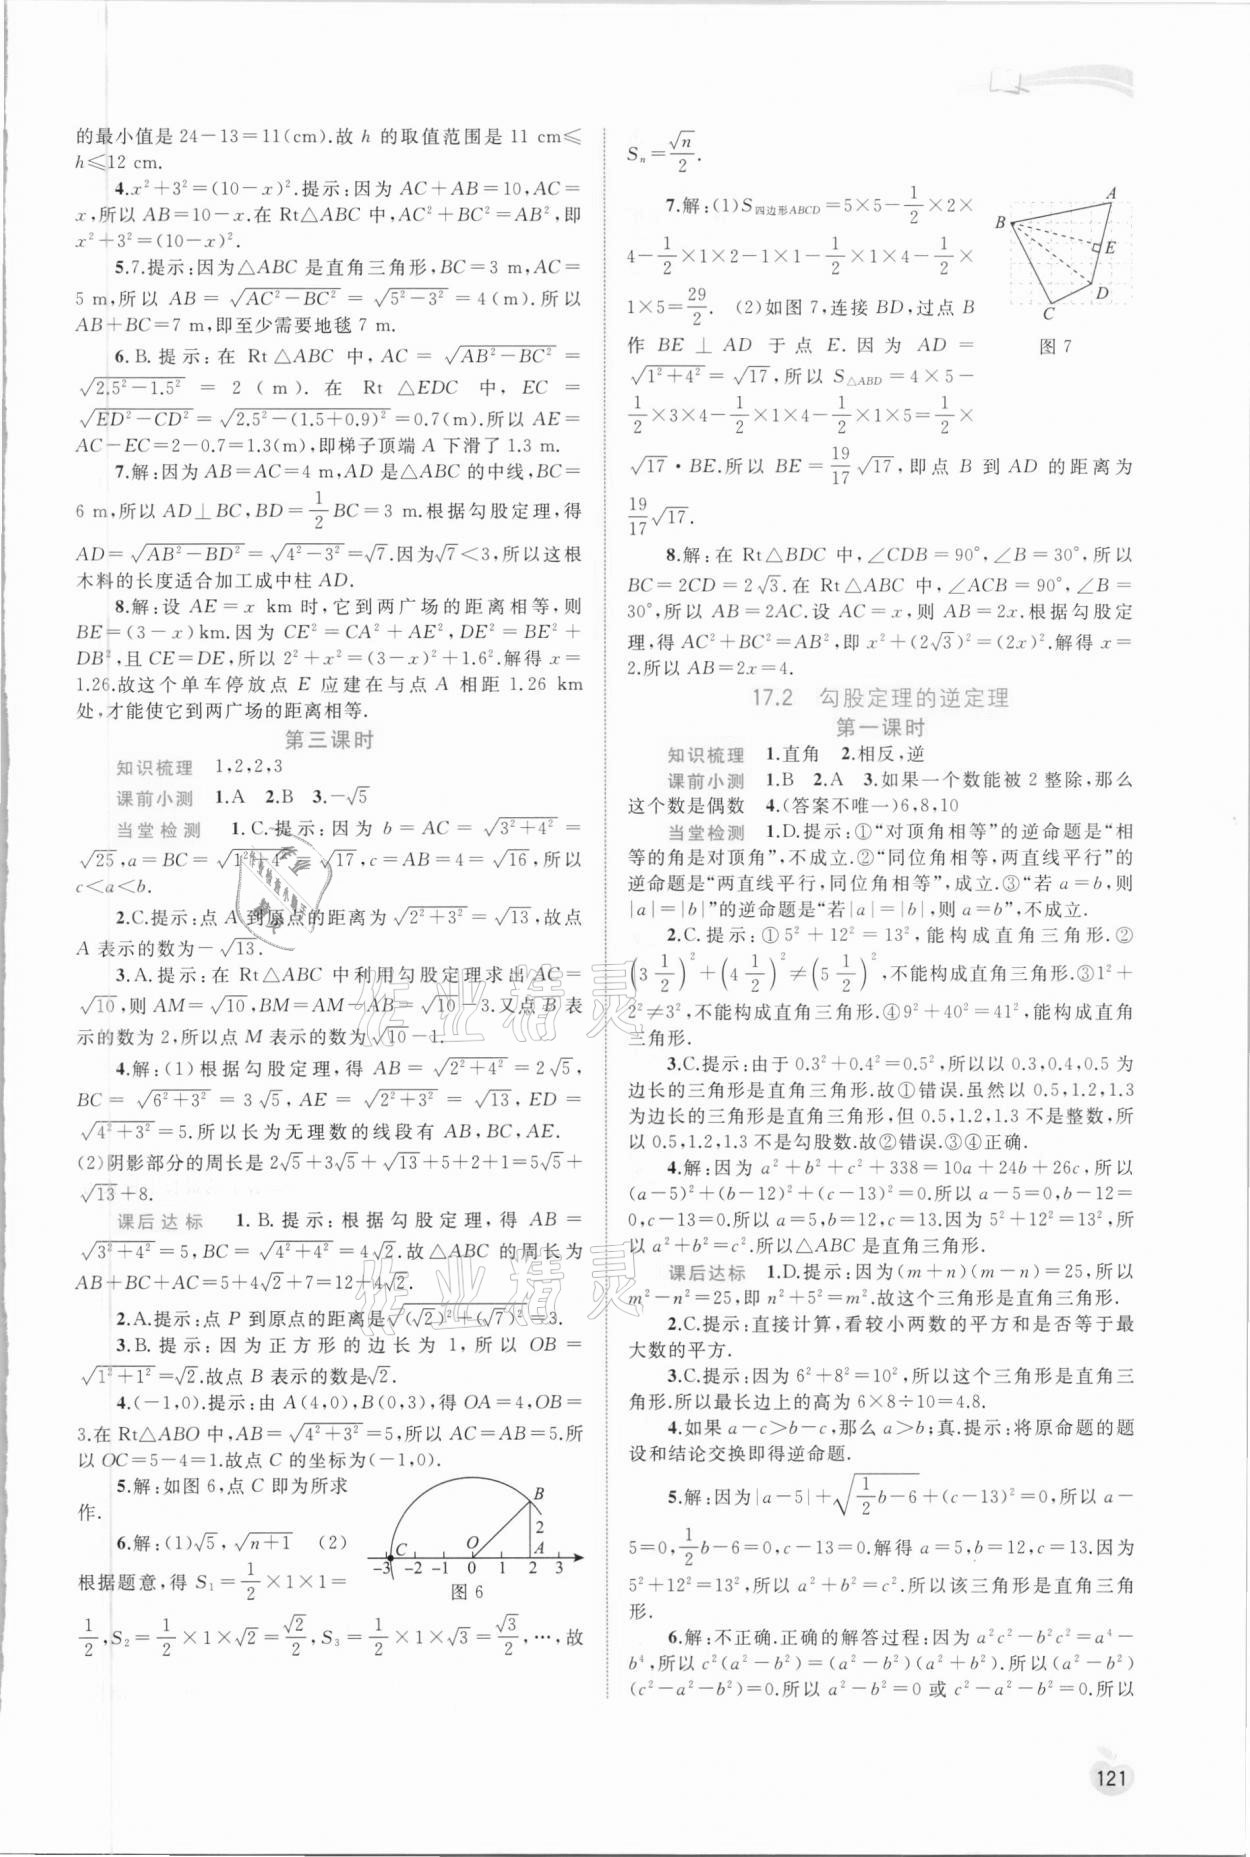 的最小值是 24－13＝11(cm).故 h 的取值范围是 11 cm≤
h≤12 cm.
4.x²＋3²＝(10－x)².提示:因为 AC＋AB＝10,AC＝
x,所以 AB＝10－x.在 Rt△ABC 中,AC²＋BC²＝AB²,即
x²＋3²＝(10－x)².
5.7.提示:因为△ABC 是直角三角形,BC＝3 m,AC＝
5 m,所以 AB＝√(AC²－BC²)＝√(5²－3²)＝4(m).所以
AB＋BC＝7 m,即至少需要地毯 7 m.
6.B.提示:在 Rt△ABC 中,AC＝√(AB²－BC²)＝
√(2.5²－1.5²)＝2(m).在 Rt△EDC 中,EC＝
√(ED²－CD²)＝√(2.5²－(1.5＋0.9)²)＝0.7(m).所以 AE＝
AC－EC＝2－0.7＝1.3(m),即梯子顶端 A 下滑了 1.3 m.
7.解:因为 AB＝AC＝4 m,AD 是△ABC 的中线,BC＝
6 m,所以 AD⊥BC,BD＝1/2BC＝3 m.根据勾股定理,得
AD＝√(AB²－BD²)＝√(4²－3²)＝√7.因为√7＜3,所以这根
木料的长度适合加工成中柱 AD.
8.解:设 AE＝x km 时,它到两广场的距离相等,则
BE＝(3－x)km.因为 CE²＝CA²＋AE²,DE²＝BE²＋
DB²,且 CE＝DE,所以 2²＋x²＝(3－x)²＋1.6².解得 x＝
1.26.故这个单车停放点 E 应建在与点 A 相距 1.26 km
处,才能使它到两广场的距离相等.
第三课时
知识梳理 1,2,2,3
课前小测 1.A 2.B 3.－√5
当堂检测 1.C.提示:因为 b＝AC＝√(3²＋4²)＝
√25,a＝BC＝√(1²＋4²) √17,c＝AB＝4＝√16,所以
c＜a＜b.
2.C.提示:点 A 到原点的距离为√(2²＋3²)＝√13,故点
A 表示的数为－√13.
3.A.提示:在 Rt△ABC 中利用勾股定理求出 AC＝
√10,则 AM＝√10,BM＝AM－AB＝√10－3.又点 B 表
示的数为 2,所以点 M 表示的数为√10－1.
4.解:(1)根据勾股定理,得 AB＝√(2²＋4²)＝2√5,
BC＝√(6²＋3²)＝3√5,AE＝√(2²＋3²)＝√13,ED＝
√(4²＋3²)＝5.所以长为无理数的线段有 AB,BC,AE.
(2)阴影部分的周长是 2√5＋3√5＋√13＋5＋2＋1＝5√5＋
√13＋8.
课后达标 1.B.提示:根据勾股定理,得 AB＝
√(3²＋4²)＝5,BC＝√(4²＋4²)＝4√2.故△ABC 的周长为
AB＋BC＋AC＝5＋4√2＋7＝12＋4√2.
2.A.提示:点 P 到原点的距离是√((√2)²＋(√7)²)＝3.
3.B.提示:因为正方形的边长为 1,所以 OB＝
√(1²＋1²)＝√2.故点 B 表示的数是√2.
4.(－1,0).提示:由 A(4,0),B(0,3),得 OA＝4,OB＝
3.在 Rt△ABO 中,AB＝√(4²＋3²)＝5,所以 AC＝AB＝5.所
以 OC＝5－4＝1.故点 C 的坐标为(－1,0).
5.解:如图 6,点 C 即为所求
作.
6.解:(1)√5,√(n＋1) (2)
根据题意,得 S₁＝1/2×1×1＝
1/2,S₂＝1/2×1×√2＝√2/2,S₃＝1/2×1×√3＝√3/2,…,故
B
2
C O A
－3 －2 －1 0 1 2 3
图 6
Sₙ＝√n/2.
7.解:(1)S四边形ABCD＝5×5－1/2×2×
4－1/2×1×2－1×1－1/2×1×4－1/2×
1×5＝29/2. (2)如图 7,连接 BD,过点 B
作 BE⊥AD 于点 E.因为 AD＝
√(1²＋4²)＝√17,所以 S△ABD＝4×5－
1/2×3×4－1/2×1×4－1/2×1×5＝1/2×
√17·BE.所以 BE＝19/17√17,即点 B 到 AD 的距离为
19/17√17.
A
B
E
D
C
图 7
8.解:在 Rt△BDC 中,∠CDB＝90°,∠B＝30°,所以
BC＝2CD＝2√3.在 Rt△ABC 中,∠ACB＝90°,∠B＝
30°,所以 AB＝2AC.设 AC＝x,则 AB＝2x.根据勾股定
理,得 AC²＋BC²＝AB²,即 x²＋(2√3)²＝(2x)².解得 x＝
2.所以 AB＝2x＝4.
17.2 勾股定理的逆定理
第一课时
知识梳理 1.直角 2.相反,逆
课前小测 1.B 2.A 3.如果一个数能被 2 整除,那么
这个数是偶数 4.(答案不唯一)6,8,10
当堂检测 1.D.提示:①“对顶角相等”的逆命题是“相
等的角是对顶角”,不成立.②“同位角相等,两直线平行”的
逆命题是“两直线平行,同位角相等”,成立.③“若 a＝b,则
|a|＝|b|”的逆命题是“若|a|＝|b|,则 a＝b”,不成立.
2.C.提示:①5²＋12²＝13²,能构成直角三角形.②
(3 1/2)²＋(4 1/2)²≠(5 1/2)²,不能构成直角三角形.③1²＋
2²≠3²,不能构成直角三角形.④9²＋40²＝41²,能构成直角
三角形.
3.C.提示:由于 0.3²＋0.4²＝0.5²,所以以 0.3,0.4,0.5 为
边长的三角形是直角三角形.故①错误.虽然以 0.5,1.2,1.3
为边长的三角形是直角三角形,但 0.5,1.2,1.3 不是整数,所
以 0.5,1.2,1.3 不是勾股数.故②错误.③④正确.
4.解:因为 a²＋b²＋c²＋338＝10a＋24b＋26c,所以
(a－5)²＋(b－12)²＋(c－13)²＝0.所以 a－5＝0,b－12＝
0,c－13＝0.所以 a＝5,b＝12,c＝13.因为 5²＋12²＝13²,所
以 a²＋b²＝c².所以△ABC 是直角三角形.
课后达标 1.D.提示:因为(m＋n)(m－n)＝25,所以
m²－n²＝25,即 n²＋5²＝m².故这个三角形是直角三角形.
2.C.提示:直接计算,看较小两数的平方和是否等于最
大数的平方.
3.C.提示:因为 6²＋8²＝10²,所以这个三角形是直角三
角形.所以最长边上的高为 6×8÷10＝4.8.
4.如果 a－c＞b－c,那么 a＞b;真.提示:将原命题的题
设和结论交换即得逆命题.
5.解:因为|a－5|＋√(1/2b－6)＋(c－13)²＝0,所以 a－
5＝0,1/2b－6＝0,c－13＝0.解得 a＝5,b＝12,c＝13.因为
5²＋12²＝13²,所以 a²＋b²＝c².所以该三角形是直角三角
形.
6.解:不正确.正确的解答过程:因为 a²c²－b²c²＝a⁴－
b⁴,所以 c²(a²－b²)＝(a²－b²)(a²＋b²).所以(a²－b²)
(c²－a²－b²)＝0.所以 a²－b²＝0 或 c²－a²－b²＝0.所以
作业精灵
作业精灵
121